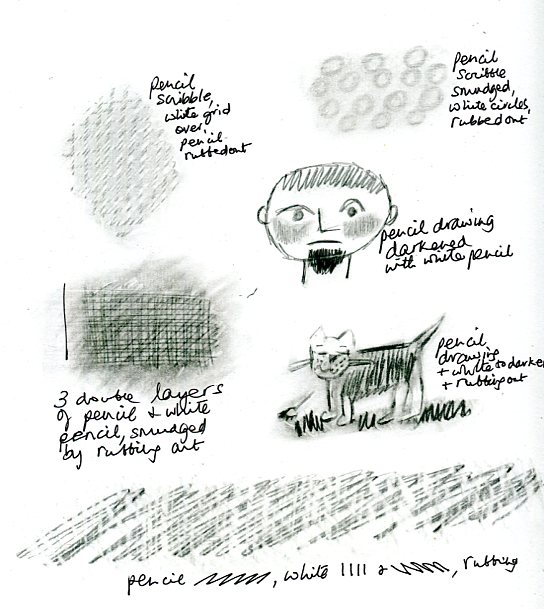 pencil
scribble,
white grid
over,
pencil
rubbed out
pencil
scribble
smudged,
white circles,
rubbed out
pencil drawing
darkened
with white pencil
3 double layers
of pencil & white
pencil, smudged
by rubbing out
pencil
drawing
+ white to darken
+ rubbing out
pencil , white & , rubbing